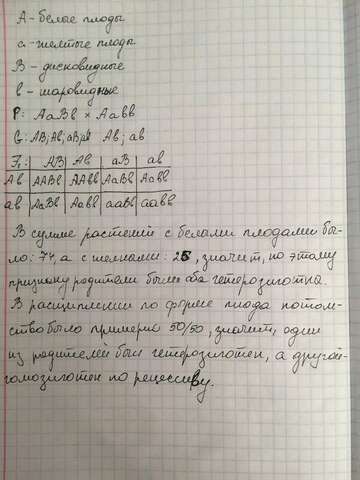 А - белые плоды
а - желтые плоды
В - дисковидные
в - шаровидные
Р: АаВв × Аавв
G: АВ; Ав; аВ; ав Ав; ав
F₁: АВ Ав аВ ав
Ав ААВв ААвв АаВв Аавв
ав АаВв Аавв ааВв аавв
В сумме растений с белыми плодами бы-
ло: 74, а с желтыми: 25, значит, по этому
признаку родители были оба гетерозиготна.
В расщеплении по форме плода потом-
ство было примерно 50/50, значит, один
из родителей был гетерозиготен, а другой-
гомозиготен по рецессиву.